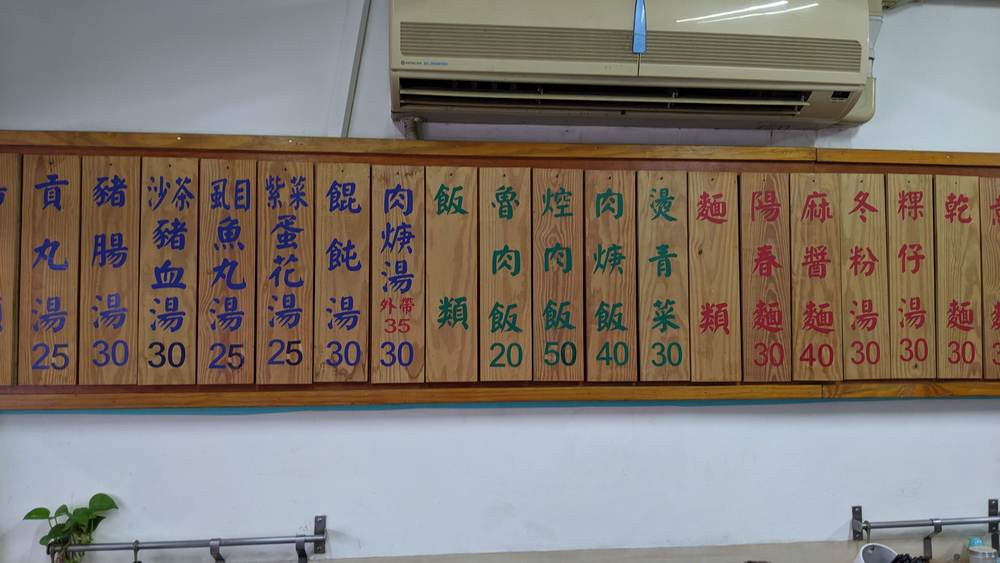 HITACHI
貢丸湯 25
豬腸湯 30
沙茶豬血湯 30
虱目魚丸湯 25
紫菜蛋花湯 25
餛飩湯 30
肉焿湯 外帶 35 30
飯類
魯肉飯 20
焢肉飯 50
肉焿飯 40
燙青菜 30
麵類
陽春麵 30
麻醬麵 40
冬粉湯 30
粿仔湯 30
乾麵 30